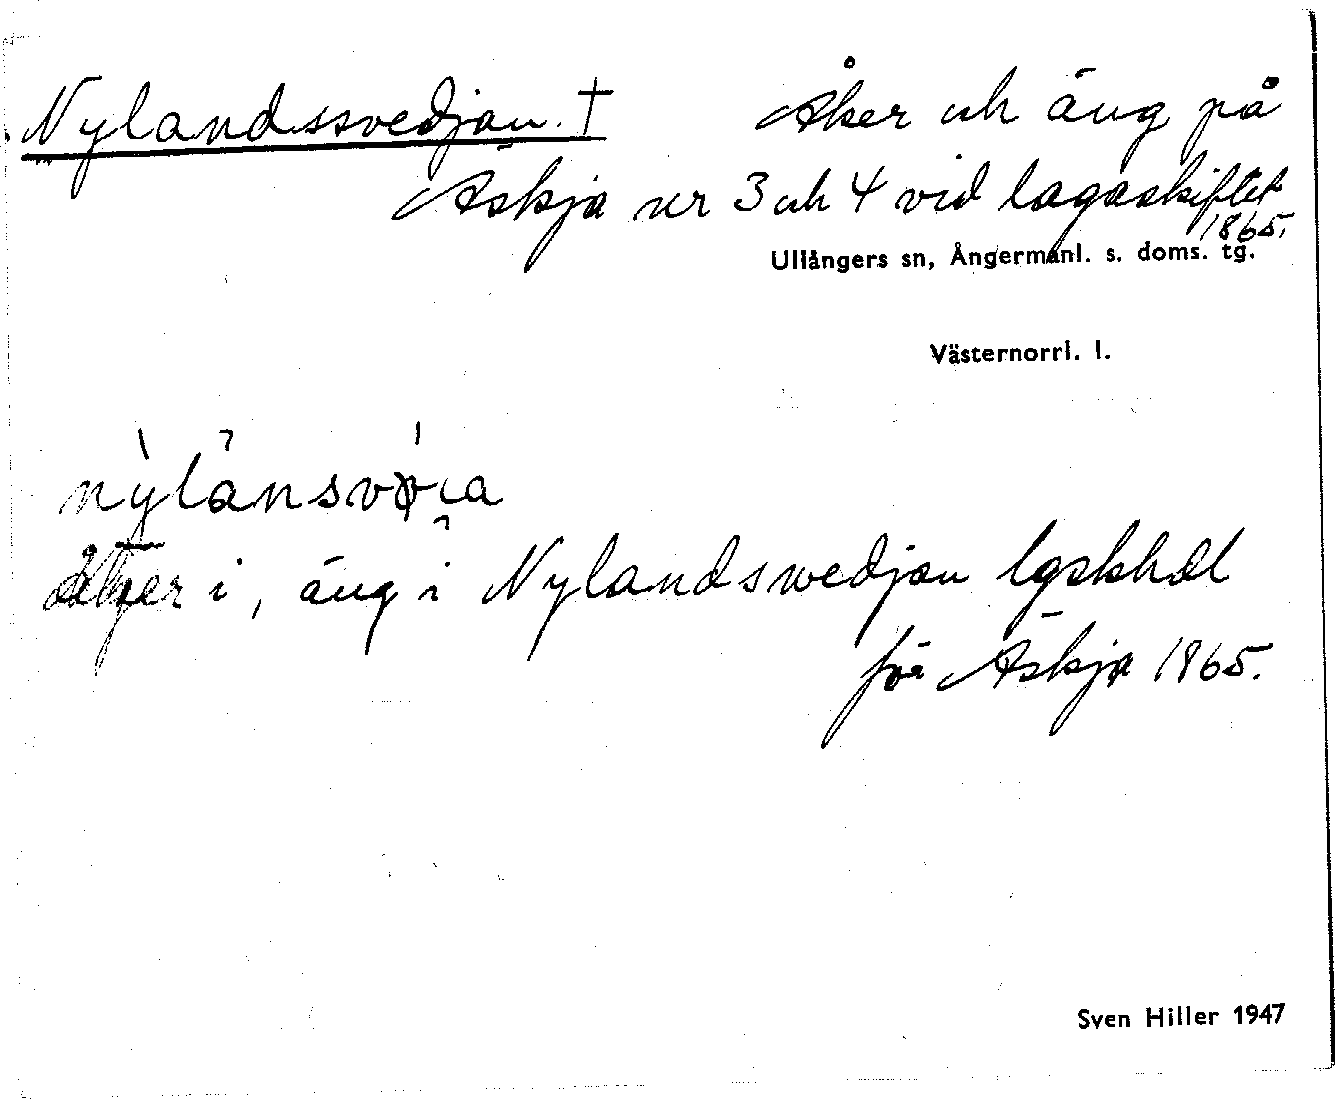 Nylandssvedjan. † Åker och äng på
Äskja nr 3 och 4 vid lagaskiftet
1865.
Ullångers sn, Ångermanl. s. doms. tg.
Västernorrl. l.
nylansvøıa
åker i, äng i Nylandswedjan lgskhdl
för Äskja 1865.
Sven Hiller 1947